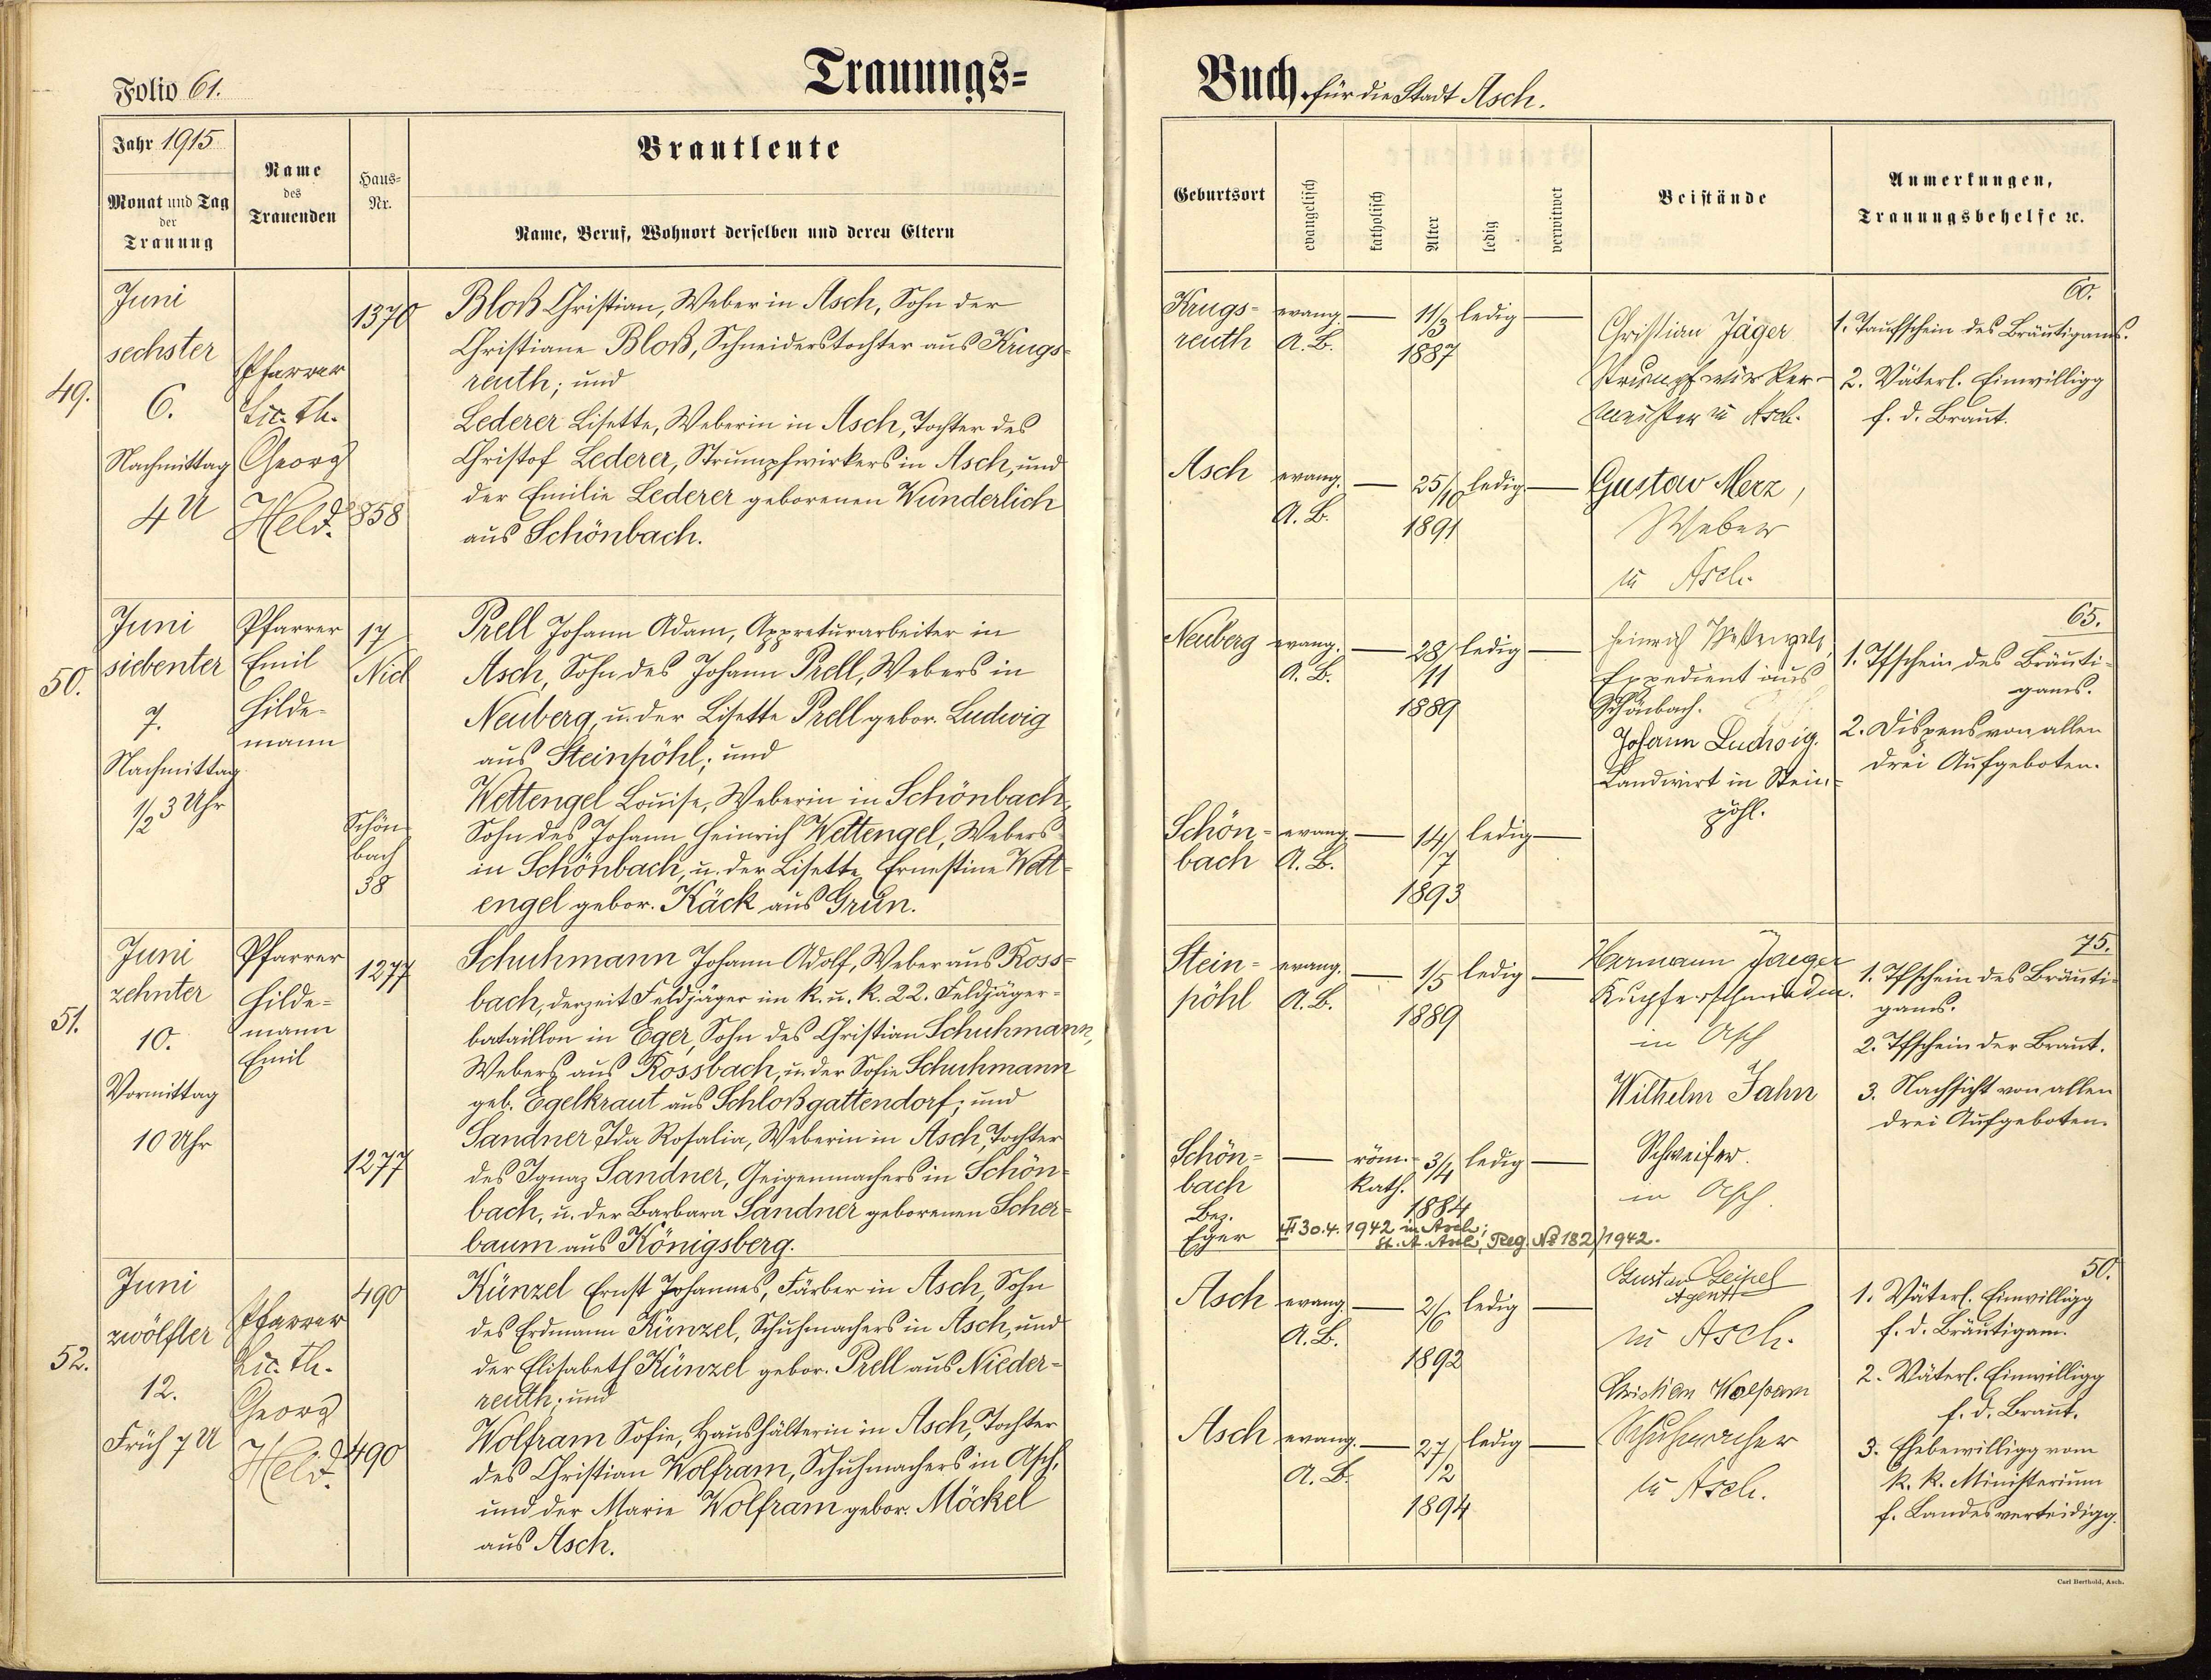 Folio 61.
Trauungs=
Jahr 1915
Monat und Tag
der
Trauung
Name
des
Trauenden
Haus=
Nr.
Brautleute
Name, Beruf, Wohnort derselben und deren Eltern
49.
Juni
sechster
6.
Nachmittag
4 U
Pfarrer
Lic. th.
Georg
Held.
1370
858
Bloß Christian, Weber in Asch, Sohn der
Christiane Bloß, Schneiderstochter aus Krugs-
reuth; und
Lederer Lisette, Weberin in Asch, Tochter des
Christof Lederer, Strumpfwirkers in Asch, und
der Emilie Lederer geborenen Wunderlich
aus Schönbach.
50.
Juni
siebenter
7.
Nachmittag
1/2 3 Uhr
Pfarrer
Emil
Hilde-
mann
17/
Nied
Schön
bach
38
Prell Johann Adam, Appreturarbeiter in
Asch, Sohn des Johann Prell, Webers in
Neuberg, u. der Lisette Prell gebor. Ludwig
aus Steinpöhl; und
Wettengel Louise, Weberin in Schönbach,
Sohn des Johann Heinrich Wettengel, Webers
in Schönbach, u. der Lisette Ernestine Wett-
engel gebor. Käck aus Grün.
51.
Juni
zehnter
10.
Vormittag
10 Uhr
Pfarrer
Hilde-
mann
Emil
1277
1277
Schuhmann Johann Adolf, Weber aus Ross-
bach, derzeit Feldjäger im k. u. k. 22. Feldjäger-
bataillon in Eger, Sohn des Christian Schuhmann,
Webers aus Rossbach, u. der Sofie Schuhmann
geb. Egelkraut aus Schloßgattendorf; und
Sandner Ida Rosalia, Weberin in Asch, Tochter
des Ignaz Sandner, Geigenmachers in Schön-
bach, u. der Barbara Sandner geborenen Scher-
baum aus Königsberg.
52.
Juni
zwölfter
12.
Früh 7 U
Pfarrer
Lic. th.
Georg
Held.
490
490
Künzel Ernst Johannes, Färber in Asch, Sohn
des Erdmann Künzel, Schuhmachers in Asch, und
der Elisabeth Künzel gebor. Prell aus Nieder-
reuth; und
Wolfram Sofie, Haushälterin in Asch, Tochter
des Christian Wolfram, Schuhmachers in Asch,
und der Marie Wolfram gebor. Möckel
aus Asch.
Buch für die Stadt Asch.
Geburtsort
evangelisch
katholisch
Alter
ledig
verwitwet
Beistände
Anmerkungen,
Trauungsbehelfe ꝛc.
Krugs-
reuth
evang.
A. B.
11/3
1887
ledig
Asch
evang.
A. B.
25/10
1891
ledig
Christian Jäger
Strumpfwirker-
meister in Asch.
Gustav Merz,
Weber
in Asch.
60.
1. Taufschein des Bräutigams.
2. Väterl. Einwilligg
f. d. Braut.
Neuberg
evang.
A. B.
28/
11
1889
ledig
Schön-
bach
evang.
A. B.
14/
7
1893
ledig
Heinrich Wettengel,
Expedient aus
Schönbach.
Johann Ludwig.
Landwirt in Stein-
pöhl.
65.
1. Tfschein des Bräuti-
gams.
2. Dispens von allen
drei Aufgeboten.
Stein-
pöhl
evang.
A. B.
1/5
1889
ledig
Schön-
bach
Bez.
Eger
röm.
kath.
3/4
1884
ledig
30.4.1942 in Asch;
St. A. Asch, Reg. No 182/1942.
Hermann Jaeger
Kupferschmied
in Asch
Wilhelm Jahn
Schweifer.
in Asch.
75.
1. Tfschein des Bräuti-
gams.
2. Tfschein der Braut.
3. Nachsicht von allen
drei Aufgeboten.
Asch
evang.
A. B.
2/6
1892
ledig
Asch
evang.
A. B.
27/
2
1894
ledig
Gustav Geipel
Agent
in Asch.
Christian Wolfram
Schuhmacher
in Asch.
50.
1. Väterl. Einwilligg
f. d. Bräutigam.
2. Väterl. Einwilligg
f. d. Braut.
3. Ehebewilligg vom
k. k. Ministerium
f. Landesverteidigg.
Carl Berthold, Asch.